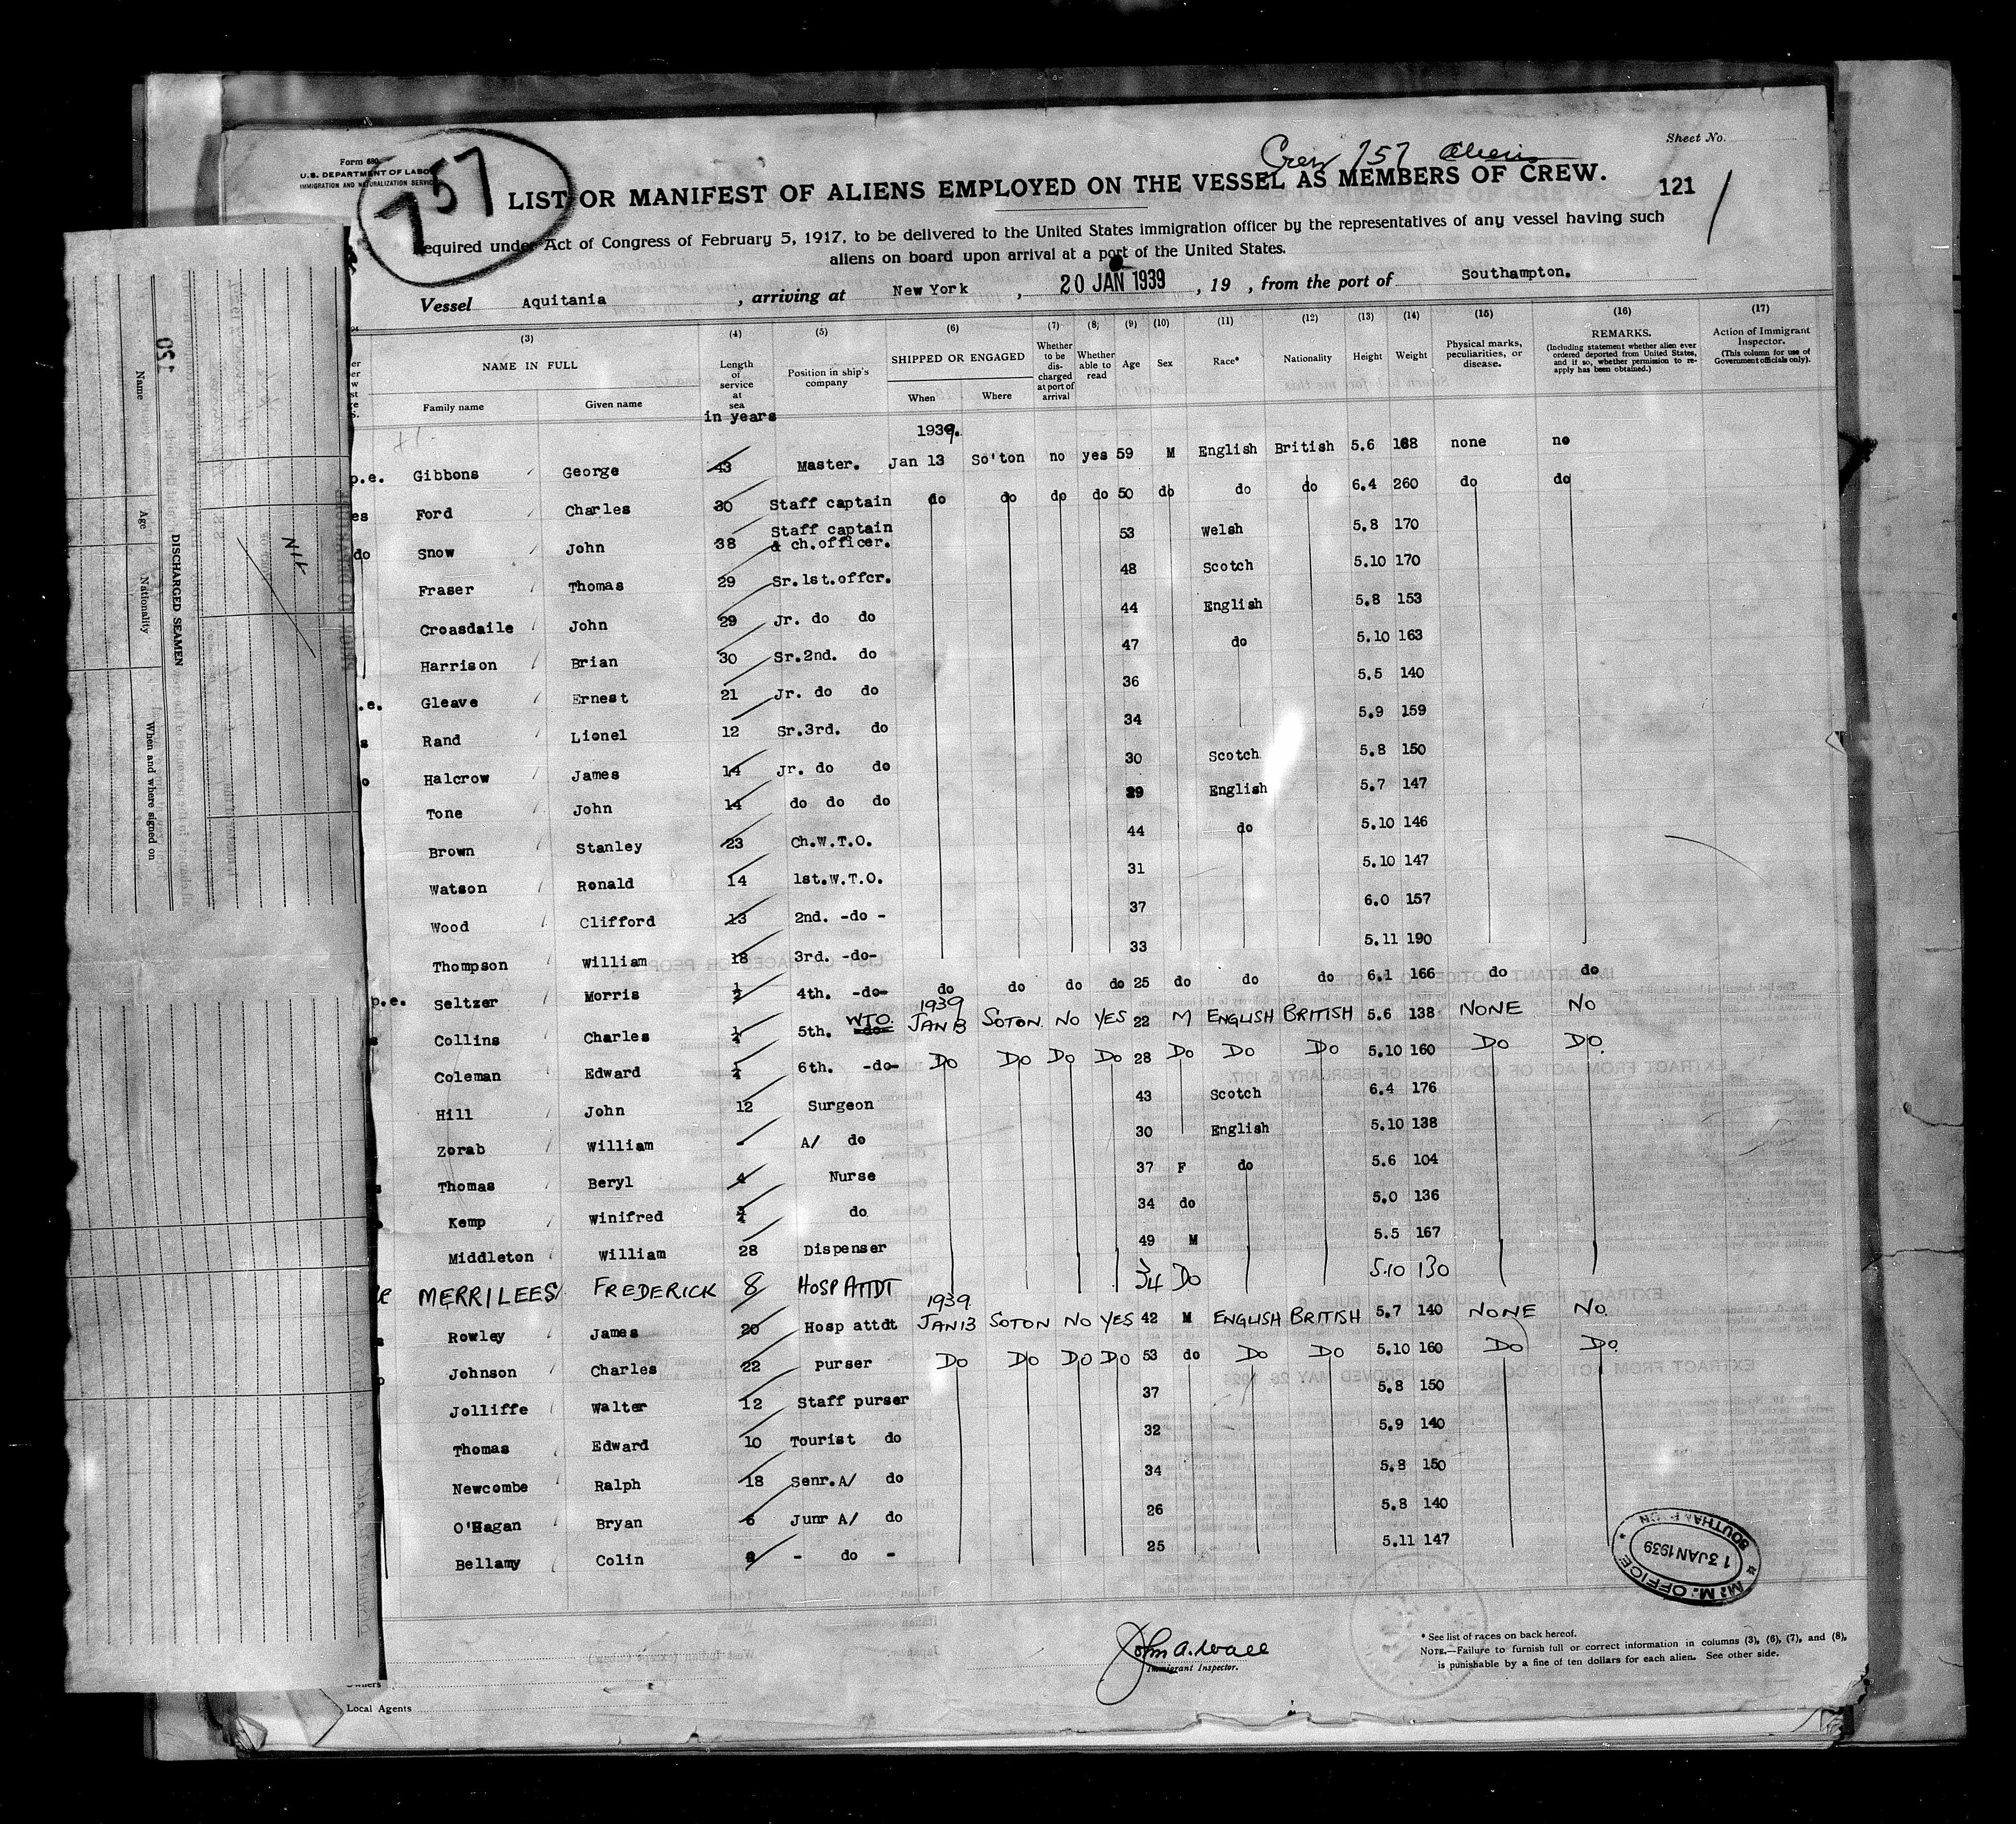 Sheet No.
Form 680
U.S. DEPARTMENT OF LABOR
IMMIGRATION AND NATURALIZATION SERVICE
757
Crew 757 Aliens
LIST OR MANIFEST OF ALIENS EMPLOYED ON THE VESSEL AS MEMBERS OF CREW.
121
equired under Act of Congress of February 5, 1917, to be delivered to the United States immigration officer by the representatives of any vessel having such
aliens on board upon arrival at a port of the United States.
Vessel Aquitania, arriving at New York, 20 JAN 1939, 19 , from the port of Southampton.
(3) (4) (5) (6) (7) (8) (9) (10) (11) (12) (13) (14) (15) (16) (17)
NAME IN FULL
Family name Given name
Length of service at sea
in years
Position in ship's company
SHIPPED OR ENGAGED
When Where
Whether to be discharged at port of arrival
Whether able to read
Age
Sex
Race*
Nationality
Height
Weight
Physical marks, peculiarities, or disease.
REMARKS.
(Including statement whether alien ever ordered deported from United States, and if so, whether permission to reapply has been obtained.)
Action of Immigrant Inspector.
(This column for use of Government officials only).
1939.
p.e. Gibbons George 43 Master. Jan 13 So'ton no yes 59 M English British 5.6 168 none no
es Ford Charles 30 Staff captain do do do do 50 do do do 6.4 260 do do
do Snow John 38 Staff captain & ch.officer. 53 Welsh 5.8 170
Fraser Thomas 29 Sr.1st.offcr. 48 Scotch 5.10 170
Croasdaile John 29 Jr. do do 44 English 5.8 153
Harrison Brian 30 Sr.2nd. do 47 do 5.10 163
.e. Gleave Ernest 21 Jr. do do 36 5.5 140
s Rand Lionel 12 Sr.3rd. do 34 5.9 159
o Halcrow James 14 Jr. do do 30 Scotch 5.8 150
Tone John 14 do do do 29 English 5.7 147
Brown Stanley 23 Ch.W.T.O. 44 do 5.10 146
Watson Ronald 14 1st.W.T.O. 31 5.10 147
Wood Clifford 13 2nd. -do - 37 6.0 157
Thompson William 18 3rd. -do- 33 5.11 190
p.e. Seltzer Morris 1/2 4th. -do- do do do do 25 do do do 6.1 166 do do
1939
s Collins Charles 1/4 5th. WTO. -do- JAN 13 SOTON. NO YES 22 M ENGLISH BRITISH 5.6 138 NONE NO
Coleman Edward 1/4 6th. -do- DO DO DO DO 28 DO DO DO 5.10 160 DO DO.
Hill John 12 Surgeon 43 Scotch 6.4 176
Zorab William - A/ do 30 English 5.10 138
s Thomas Beryl 4 Nurse 37 F do 5.6 104
Kemp Winifred 3/4 do 34 do 5.0 136
Middleton William 28 Dispenser 49 M 5.5 167
MERRILEES FREDERICK 8 HOSP ATTDT 34 DO 5.10 130
1939
s Rowley James 20 Hosp attdt JAN 13 SOTON NO YES 42 M ENGLISH BRITISH 5.7 140 NONE NO.
Johnson Charles 22 purser DO DO DO DO 53 do DO DO 5.10 160 DO DO.
Jolliffe Walter 12 Staff purser 37 5.8 150
Thomas Edward 10 Tourist do 32 5.9 140
Newcombe Ralph 18 Senr.A/ do 34 5.8 150
O'Hagan Bryan 6 Junr A/ do 26 5.8 140
Bellamy Colin - do - 25 5.11 147
M. M. OFFICE
13 JAN 1939
John A. Wall
Immigrant Inspector.
* See list of races on back hereof.
NOTE.—Failure to furnish full or correct information in columns (3), (6), (7), and (8),
is punishable by a fine of ten dollars for each alien. See other side.
Owners
Local Agents
120
DISCHARGED SEAMEN
Name
Age
Nationality
When and where signed on
NIL